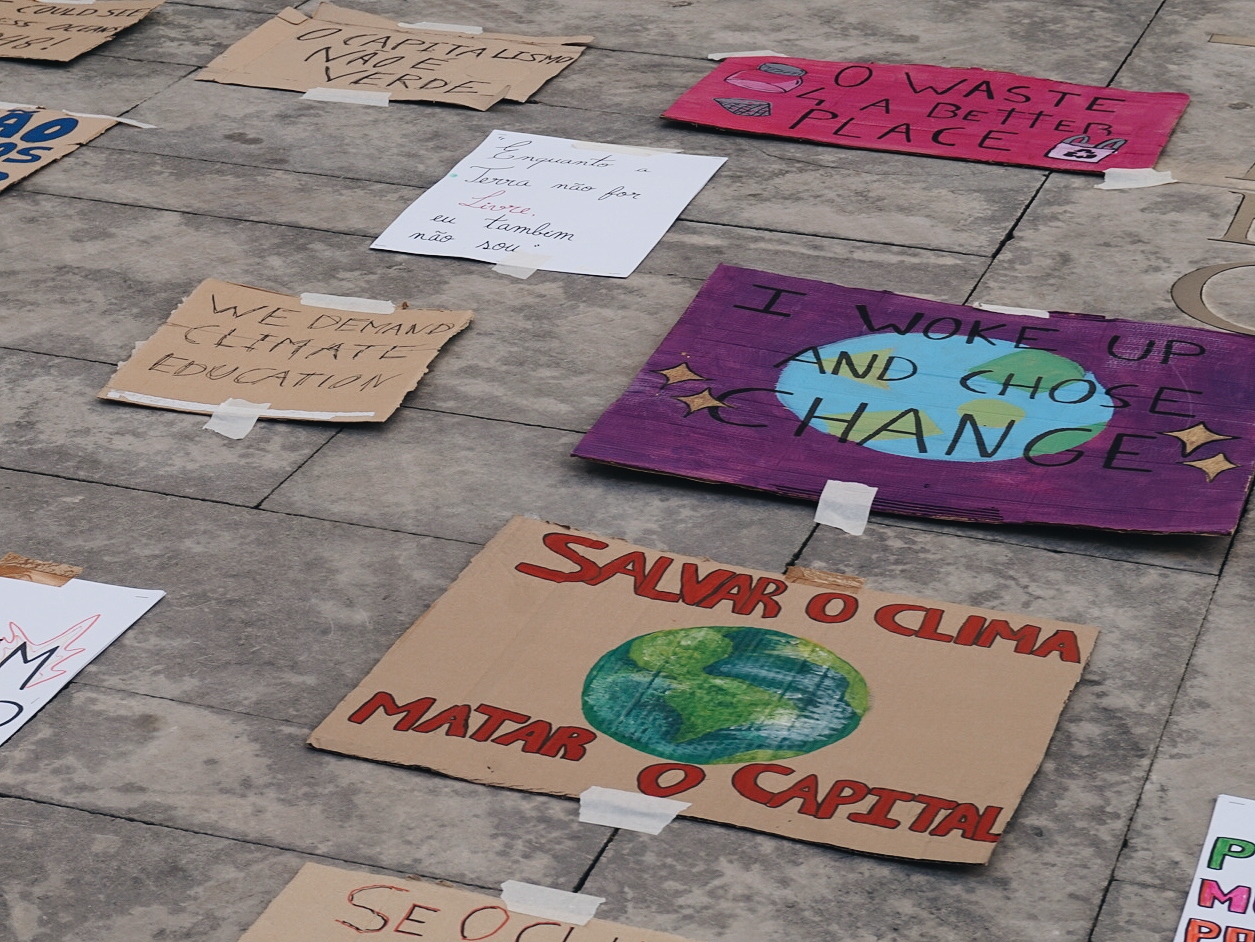 COULD SEE
O CAPITALISMO
NÃO É
VERDE
0 WASTE
4 A BETTER
PLACE
ÃO
OS
"Enquanto a
Terra não for
Livre,
eu também
não sou"
WE DEMAND
CLIMATE
EDUCATION
I WOKE UP
AND CHOSE
CHANGE
SALVAR O CLIMA
MATAR O CAPITAL
M
O
SE O CLI
P
M
PR